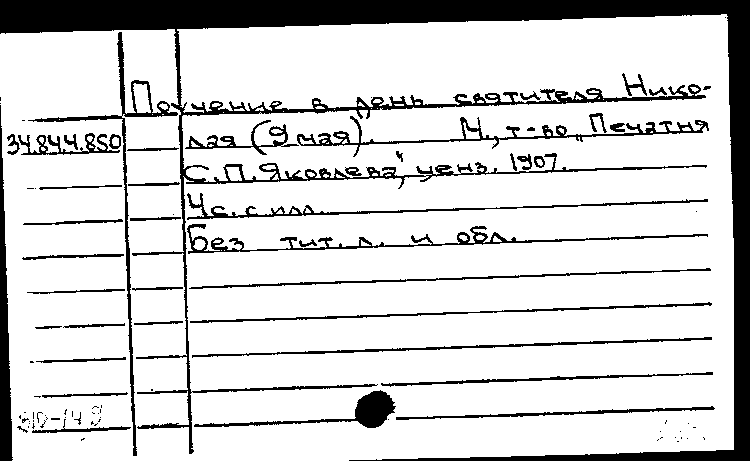 Поучение в день святителя Нико-
34.844.850 лая (9 мая). М., т-во „Печатня
С.П. Яковлева", ценз. 1907.
4 с. с илл.
Без тит. л. и обл.
310-14